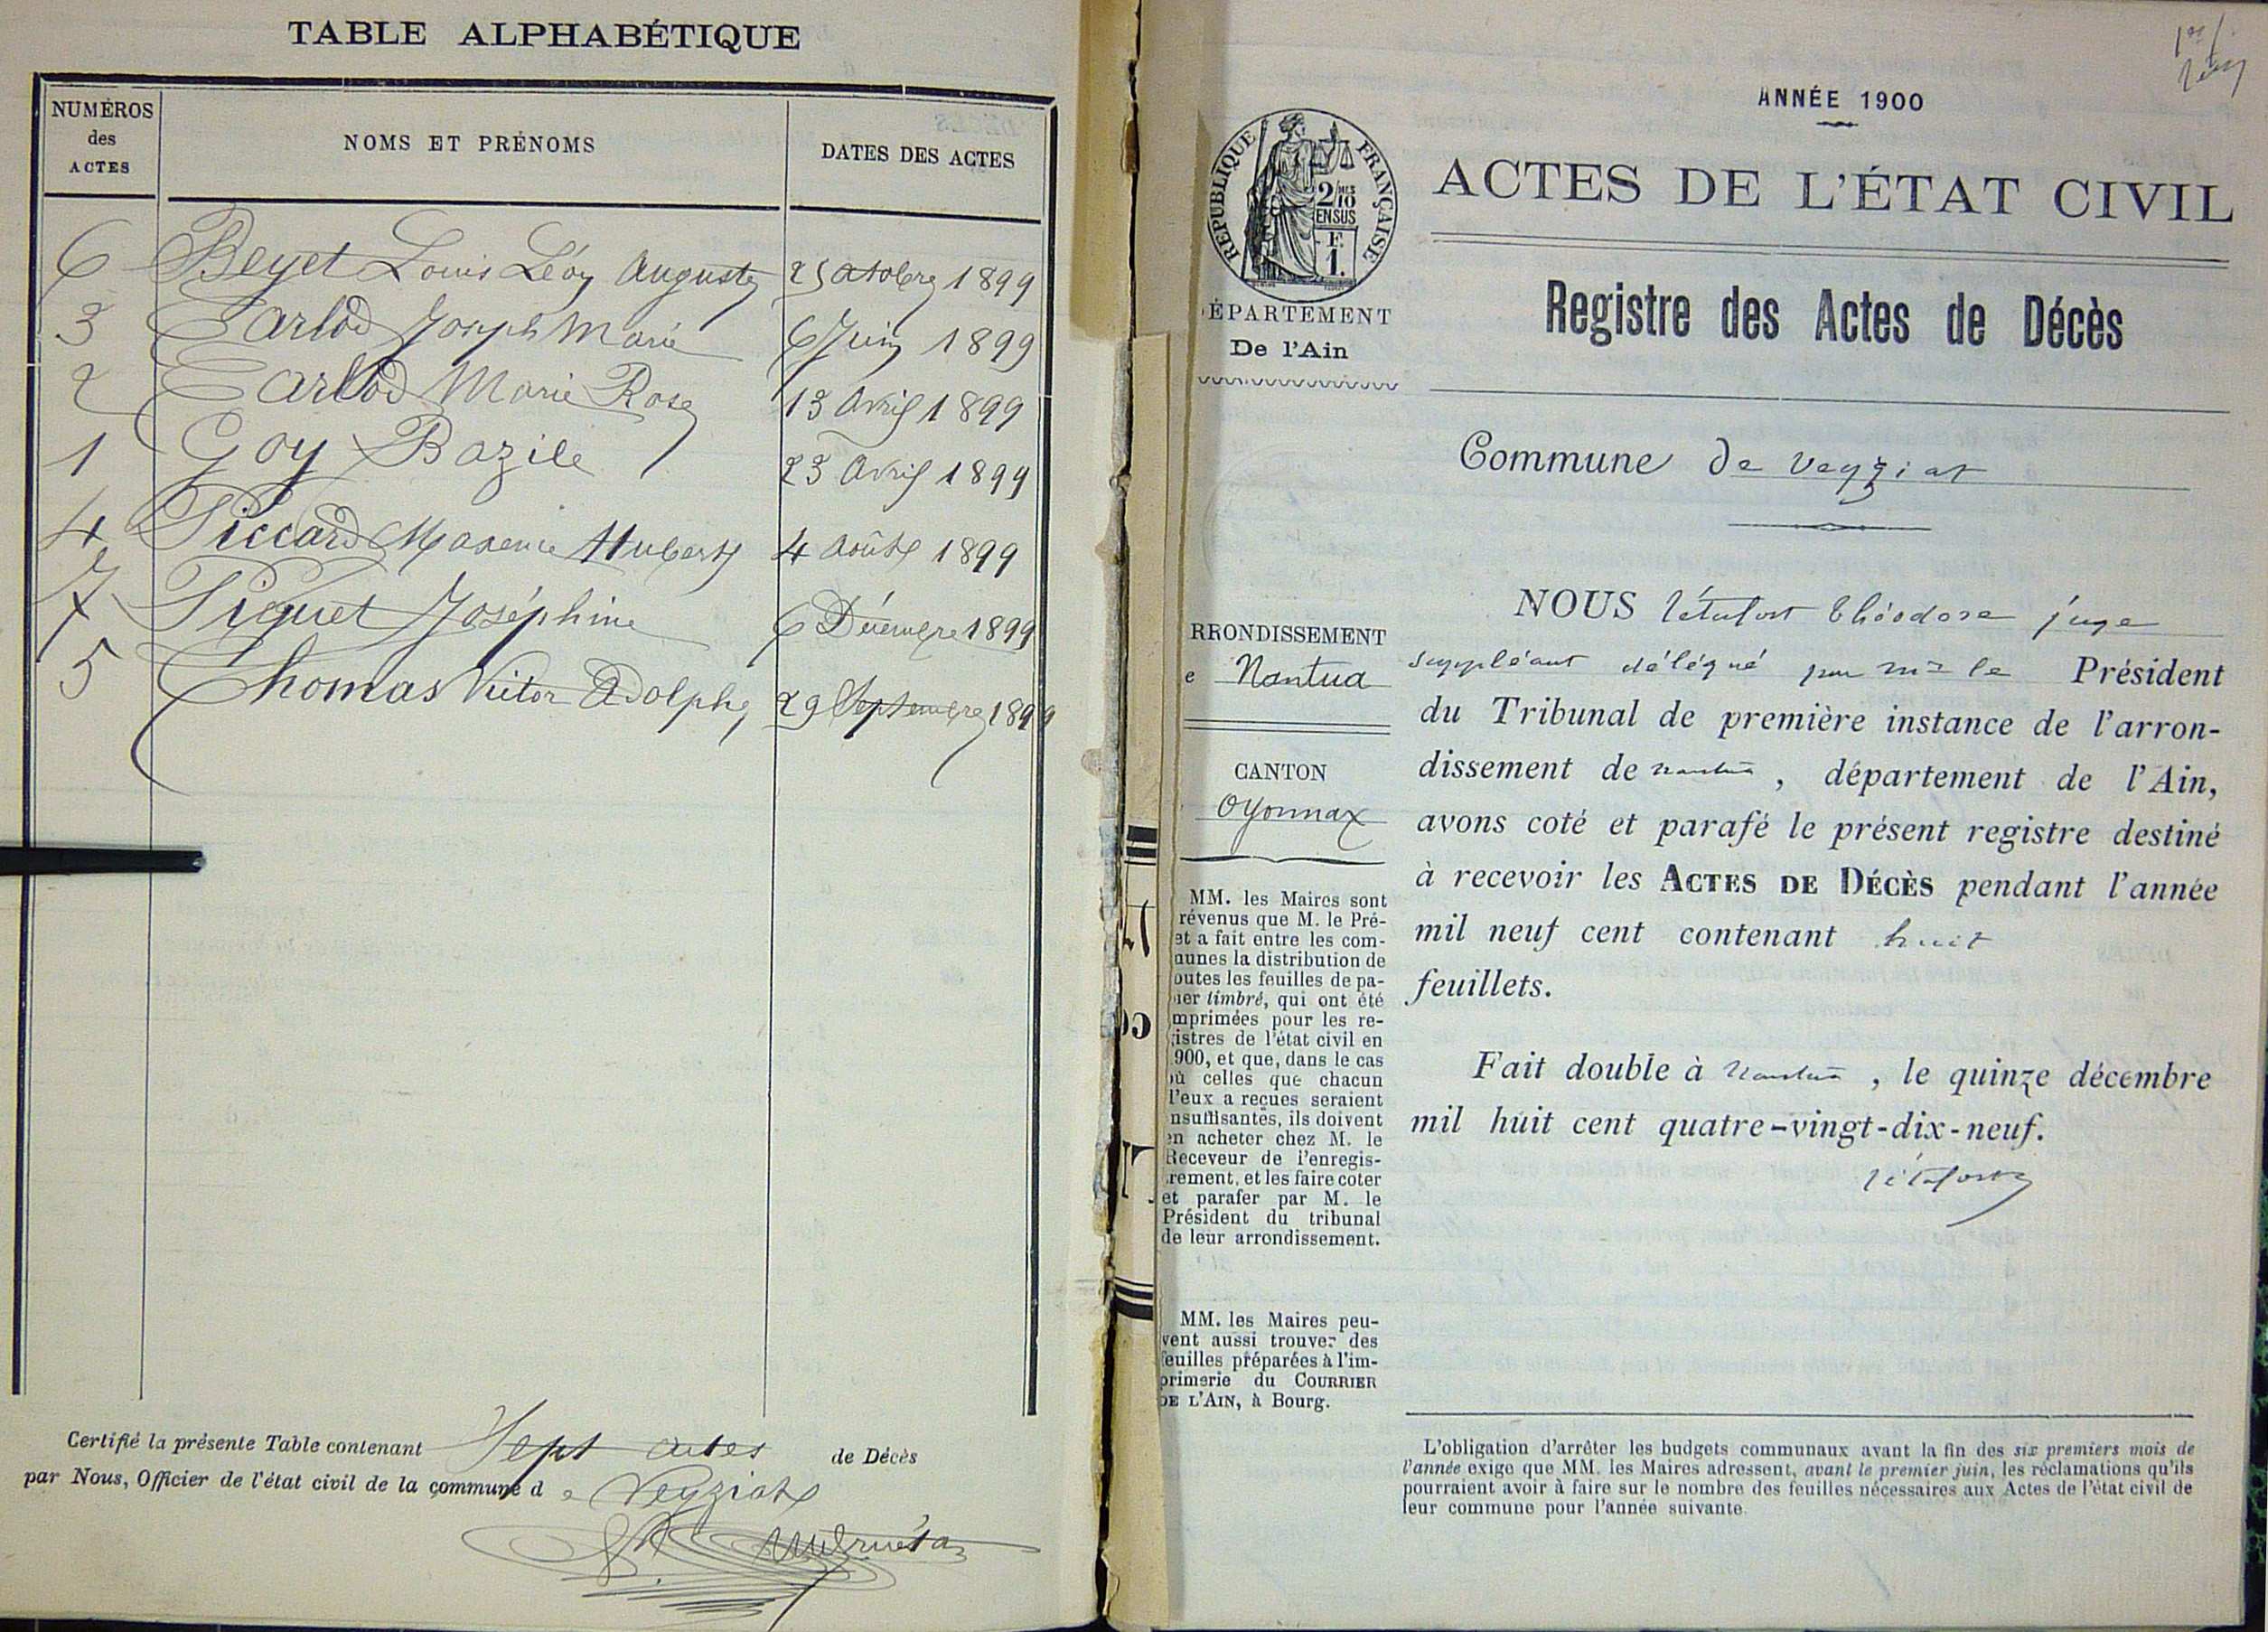 TABLE ALPHABÉTIQUE
NUMÉROS des ACTES
NOMS ET PRÉNOMS
DATES DES ACTES
6 Beyet Louis Léon Auguste 25 octobre 1899
3 Carlod Joseph Marie 6 Juin 1899
2 Carlod Marie Rose 13 avril 1899
1 Goy Bazile 23 avril 1899
4 Piccard Maxence Hubert 4 août 1899
7 Piquet Joséphine 6 Décembre 1899
5 Thomas Victor Adolphe 29 Septembre 1899
Certifié la présente Table contenant Sept actes de Décès
par Nous, Officier de l'état civil de la commune de Veyziat
ANNÉE 1900
RÉPUBLIQUE FRANÇAISE
2/10
EN SUS
F.
1.
ACTES DE L'ÉTAT CIVIL
ÉPARTEMENT
De l'Ain
Registre des Actes de Décès
Commune de Veyziat
RRONDISSEMENT
e Nantua
CANTON
Oyonnax
NOUS Théodore juge
suppléant délégué par Mr le Président
du Tribunal de première instance de l'arron-
dissement de Nantua, département de l'Ain,
avons coté et parafé le présent registre destiné
à recevoir les ACTES DE DÉCÈS pendant l'année
mil neuf cent contenant huit
feuillets.
Fait double à Nantua, le quinze décembre
mil huit cent quatre-vingt-dix-neuf.
MM. les Maires sont
révenus que M. le Pré-
et a fait entre les com-
unes la distribution de
outes les feuilles de pa-
ier timbré, qui ont été
mprimées pour les re-
istres de l'état civil en
900, et que, dans le cas
ù celles que chacun
l'eux a reçues seraient
nsuffisantes, ils doivent
en acheter chez M. le
Receveur de l'enregis-
rement, et les faire coter
et parafer par M. le
Président du tribunal
de leur arrondissement.
MM. les Maires peu-
vent aussi trouver des
feuilles préparées à l'im-
primerie du COURRIER
DE L'AIN, à Bourg.
L'obligation d'arrêter les budgets communaux avant la fin des six premiers mois de
l'année exige que MM. les Maires adressent, avant le premier juin, les réclamations qu'ils
pourraient avoir à faire sur le nombre des feuilles nécessaires aux Actes de l'état civil de
leur commune pour l'année suivante.